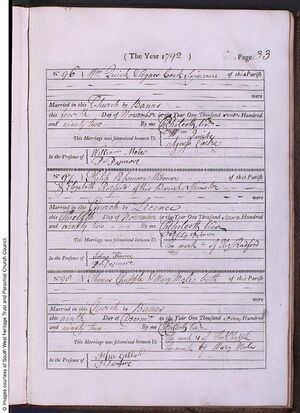 ( The Year 1792 ) Page 33
No 96 } Wm Quick & Agnes Cock Sojourners of this Parish
were
Married in this Church by Banns
this fourth Day of November in the Year One Thousand seven Hundred
and ninety two By me
This Marriage was solemnized between Us { Wm Quick
Agness Cocke
In the Presence of { William Moles
No 97 } Philip of this Parish
& Elizabeth Radford of this Parish Spinster
were
Married in this Church by Licence
this Day of November in the Year One Thousand seven Hundred
and ninety two By me
This Marriage was solemnized between Us {
The mark + of Radford
In the Presence of { Thorne
No 98 } Thomas Chapple & Mary Moles both of this Parish
were
Married in this Church by Banns
this ninth Day of Decembr in the Year One Thousand seven Hundred
and ninety two By me
This Marriage was solemnized between Us { The mark of Thos Chapple
The mark of Mary Moles
In the Presence of {
© Images courtesy of South West Heritage Trust and Parochial Church Council.